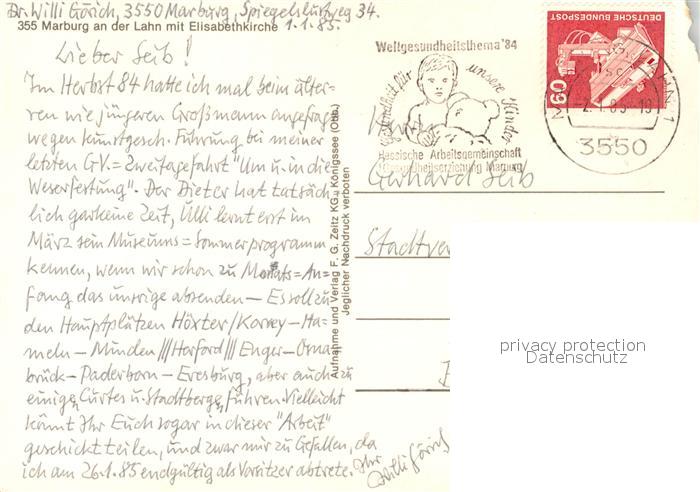 Dr. Willi Görich, 3550 Marburg, Spiegelslustweg 34.
355 Marburg an der Lahn mit Elisabethkirche
1.1.85.
Lieber Seib!
Im Herbst 84 hatte ich mal beim älte-
ren wie jüngeren Großmann angefragt
wegen kunstgesch. Führung bei meiner
letzten GV.= Zweitagefahrt "Um u. in die
Weserfestung". Der Dieter hat tatsäch-
lich garkeine Zeit, Ulli lernt erst im
März sein Museums= Sommerprogramm
kennen, wenn wir schon zu Monats=An-
fang das unsrige absenden – Es soll zu
den Hauptplätzen Höxter/Korvey – Ha-
meln – Minden /// Harford /// Enger – Osna-
brück – Paderborn – Eresburg, aber auch zu
einigen Curtes u. Stadtbergen führen. Vielleicht
könnt Ihr Euch sogar in dieser "Arbeit"
geschickt teilen, und zwar mir zu Gefallen, da
ich am 26.1.85 endgültig als Vorsitzer abtrete. Ihr
Willi Görich
Aufnahme und Verlag F. G. Zeitz KG., Königssee (Obb.)
Jeglicher Nachdruck verboten
Weltgesundheitsthema '84
Gesundheit für unsere Kinder
Hessische Arbeitsgemeinschaft
Gesundheitserziehung Marburg
DEUTSCHE BUNDESPOST
60
-2.1.85-19
1
3550
Gerhard Seib
privacy protection
Datenschutz